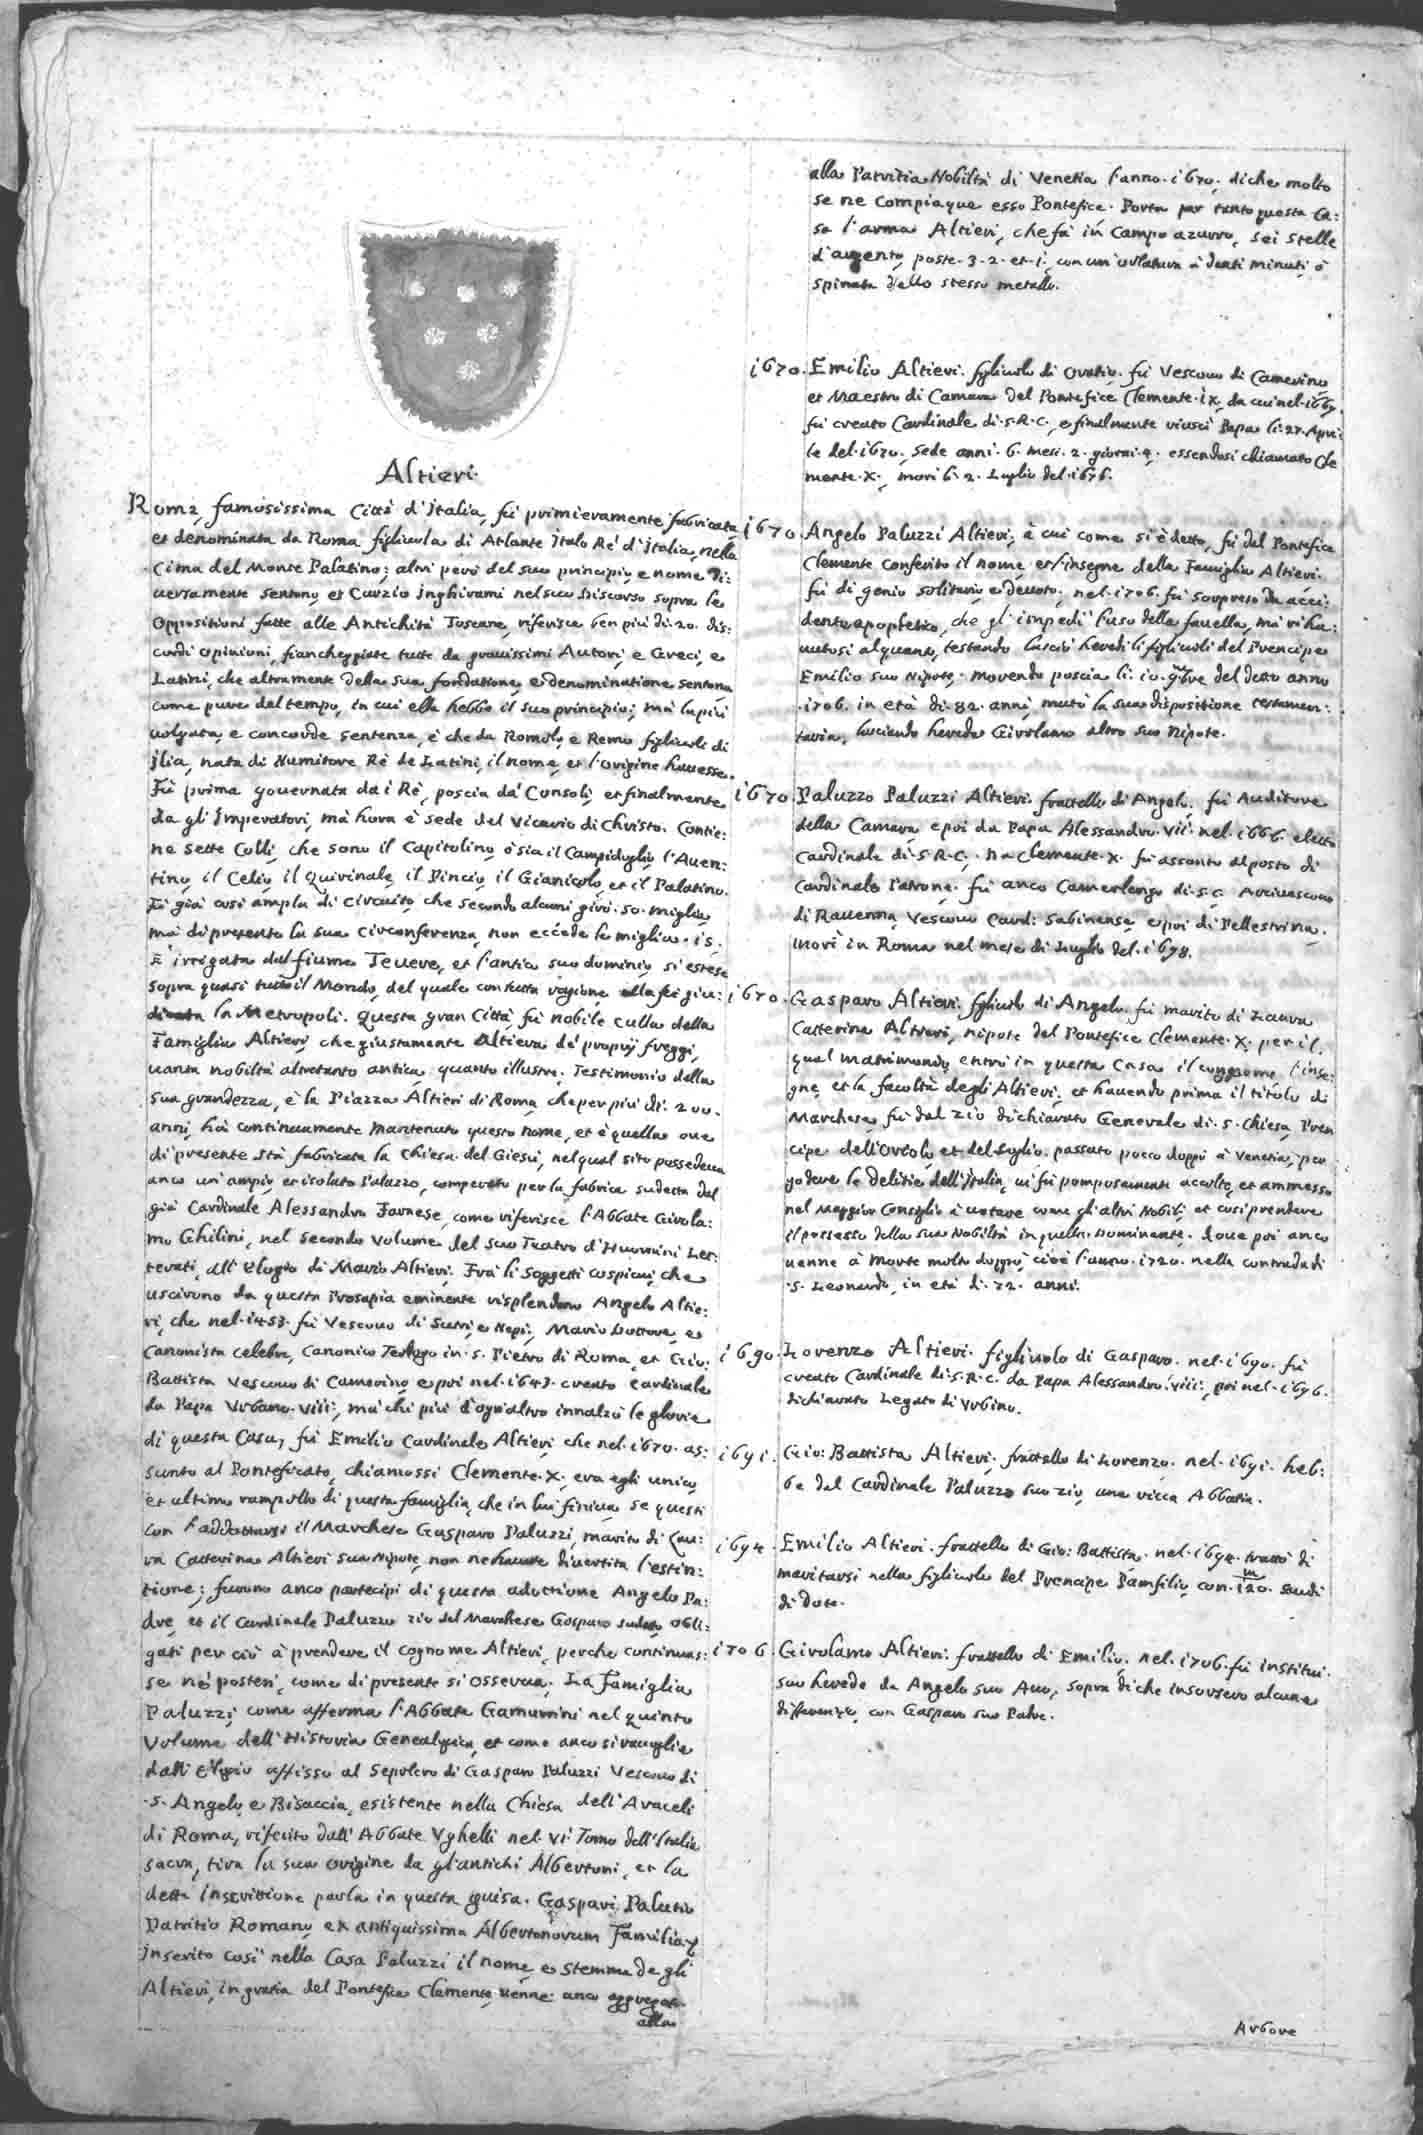 Altieri.
Roma, famosissima Città d'Italia, fù primieramente fabricata
et denominata da Roma figliuola di Atlante Italo Rè d'Italia, nella
Cima del Monte Palatino; altri però del suo principio, e nome di:
uersamente sentono, et Curzio Inghirami nel suo Discorso sopra le
Oppositioni fatte alle Antichità Toscane, riferisce ben più di .20. dis:
cordi opinioni, fiancheggiate tutte da grauissimi Autori, e Greci, e
Latini, che altramente della sua fondatione, e denominatione sentono,
come pure del tempo, in cui ella hebbe il suo principio; mà la più
uolgata, e concorde sentenza, è che da Romolo, e Remo figliuoli di
Ilia, nata di Numitore Rè de Latini, il nome, et l'origine hauesse.
Fù prima gouernata da i Rè, poscia da' Consoli, et finalmente
da gl'Imperatori, mà hora è sede del Vicario di Christo. Contie:
ne sette Colli, che sono il Capitolino, ò sia il Campidoglio, l'Auen:
tino, il Celio, il Quirinale, il Pincio, il Gianicolo, et il Palatino.
Fù già così ampla di circuito, che secondo alcuni girò .50. miglia,
mà di presente la sua circonferenza, non eccede le miglia .15.
È irrigata dal fiume Teuere, et l'antico suo dominio, si estese
sopra quasi tutto il Mondo, del quale con tutta ragione ella fù giu:
dicata la Metropoli. Questa gran Città, fù nobile culla della
Famiglia Altieri, che giustamente altiera de' proprij freggi,
uanta nobiltà altretanto antica, quanto illustre. Testimonio della
sua grandezza, è la Piazza Altieri di Roma, che per più di .200.
anni, hà continuamente mantenuto questo nome, et è quella oue
di presente stà fabricata la Chiesa del Giesù, nel qual sito possedeua
anco un'ampio, et isolato Palazzo, comperato per la fabrica sudetta dal
già Cardinale Alessandro Farnese, come riferisce l'Abbate Girola:
mo Ghilini, nel secondo volume del suo Teatro d'Huomini Let:
terati, all'Elogio di Mario Altieri. Frà li soggetti cospicui, che
uscirono da questa Prosapia eminente risplendono Angelo Altie:
ri, che nel .1453. fù Vescouo di Sutri, e Nepi, Mario Dottore, e
Canonista celebre, Canonico Teologo in .S. Pietro di Roma, et Gio:
Battista Vescouo di Camerino, e poi nel .1643. creato Cardinale
da Papa Vrbano .VIII., mà chi più d'ogn'altro innalzò le glorie
di questa Casa, fù Emilio Cardinale Altieri, che nel .1670. as:
sunto al Ponteficato, chiamossi Clemente .X. era egli unico,
et ultimo rampollo di questa famiglia, che in lui finiua, se questi
con l'addottarsi il Marchese Gasparo Paluzzi, marito di Lau:
ra Catterina Altieri sua Nipote, non ne hauesse diuertita l'estin:
tione; furono anco partecipi di questa adottione Angelo Pa:
dre, et il Cardinale Paluzzo zio del Marchese Gasparo sudetto, obli:
gati per ciò à prendere il cognome Altieri, perche continuas:
se ne' posteri, come di presente si osserua. La Famiglia
Paluzzi, come afferma l'Abbate Gamurrini nel quinto
Volume dell'Historia Genealogica, et come anco si raccoglie
dall'Elogio affisso al Sepolcro di Gasparo Paluzzi Vescouo di
.S. Angelo, e Bisaccia, esistente nella Chiesa dell'Araceli
di Roma, riferito dall'Abbate Vghelli nel VI. Tomo dell'Italia
sacra, tira la sua origine da gl'antichi Albertoni, et la
detta inscrittione parla in questa guisa. Gaspari Palutio
Patritio Romano, ex antiquissima Albertonorum Familia,
inserito così nella Casa Paluzzi il nome, e stemma de gli
Altieri, in gratia del Pontefice Clemente, uenne anco aggregata
alla
alla Patritia Nobiltà di Venetia l'anno .1670. di che molto
se ne compiaque esso Pontefice. Porta per tanto questa Ca:
sa l'arma Altieri, che fà in Campo azurro, sei stelle
d'argento, poste .3.2. et .1., con un'orlatura à denti minuti, ò
spinata dello stesso metallo.
1670. Emilio Altieri. figliuolo di Oratio. fù Vescouo di Camerino,
et Maestro di Camera del Pontefice Clemente .IX., da cui nel .1669.
fù creato Cardinale di .S.R.C., e finalmente riuscì Papa li .27. Apri:
le del .1670., sede anni .6. mesi .2. giorni .4. essendosi chiamato Cle
mente .X., morì li .2. Luglio del .1676.
1670. Angelo Paluzzi Altieri, à cui come si è detto, fù dal Pontefice
Clemente conferito il nome, et l'insegne della Famiglia Altieri.
fù di genio solitario, e deuoto; nel .1706. fù sorpreso da acci:
dente apopletico, che gl'impedì l'uso della fauella, mà riha:
uutosi alquanto, testando lasciò heredi li figliuoli del Prencipe
Emilio suo Nipote. Morendo poscia li .10. 9bre del detto anno
.1706. in età di .82. anni, mutò la sua dispositione testamen:
taria, lasciando herede Girolamo altro suo Nipote.
1670. Paluzzo Paluzzi Altieri. frattello di Angelo. fù Auditore
della Camera, e poi da Papa Alessandro .VII. nel .1666. eletto
Cardinale di .S.R.C. Da Clemente .X. fù assonto al posto di
Cardinale Patrone. fù anco Camerlengo di .S.C. Arciuescouo
di Rauenna, Vescouo Card: Sabinense, e poi di Pellestrina.
Morì in Roma nel mese di Luglio del .1698.
1670. Gasparo Altieri. figliuolo di Angelo. fù marito di Laura
Catterina Altieri, nipote del Pontefice Clemente .X. per il
qual matrimonio, entrò in questa Casa il cognome, l'inse:
gne, et la facoltà degli Altieri, et hauendo prima il titolo di
Marchese, fù dal zio dichiarato Generale di .S. Chiesa, Pren
cipe dell'Oriolo, et del Soglio. passato poco doppo à Venetia, per
godere le delitie dell'Italia, ui fù pomposamente accolto, et ammesso
nel Maggior Consiglio à uotare come gli altri Nobili, et così prendere
il possesso della sua Nobiltà in quella Dominante. doue poi anco
uenne à Morte molto doppo, cioè l'anno .1720. nella contrada di
.S. Leonardo, in età di .72. anni.
1690. Lorenzo Altieri. figliuolo di Gasparo. nel .1690. fù
creato Cardinale di .S.R.C. da Papa Alessandro .VIII., poi nel .1696.
dichiarato Legato di Vrbino.
1691. Gio: Battista Altieri. frattello di Lorenzo. nel .1691. heb:
be dal Cardinale Paluzzo suo zio, una ricca Abbatia.
1694. Emilio Altieri. frattello di Gio: Battista. nel .1694. trattò di
maritarsi nella figliuola del Prencipe Pamfilio, con .120.m scudi
di dote.
1706. Girolamo Altieri. frattello di Emilio. nel .1706. fù institui:
suo herede da Angelo suo Auo, sopra di che insorsero alcune
differenze, con Gasparo suo Padre.
Arbore